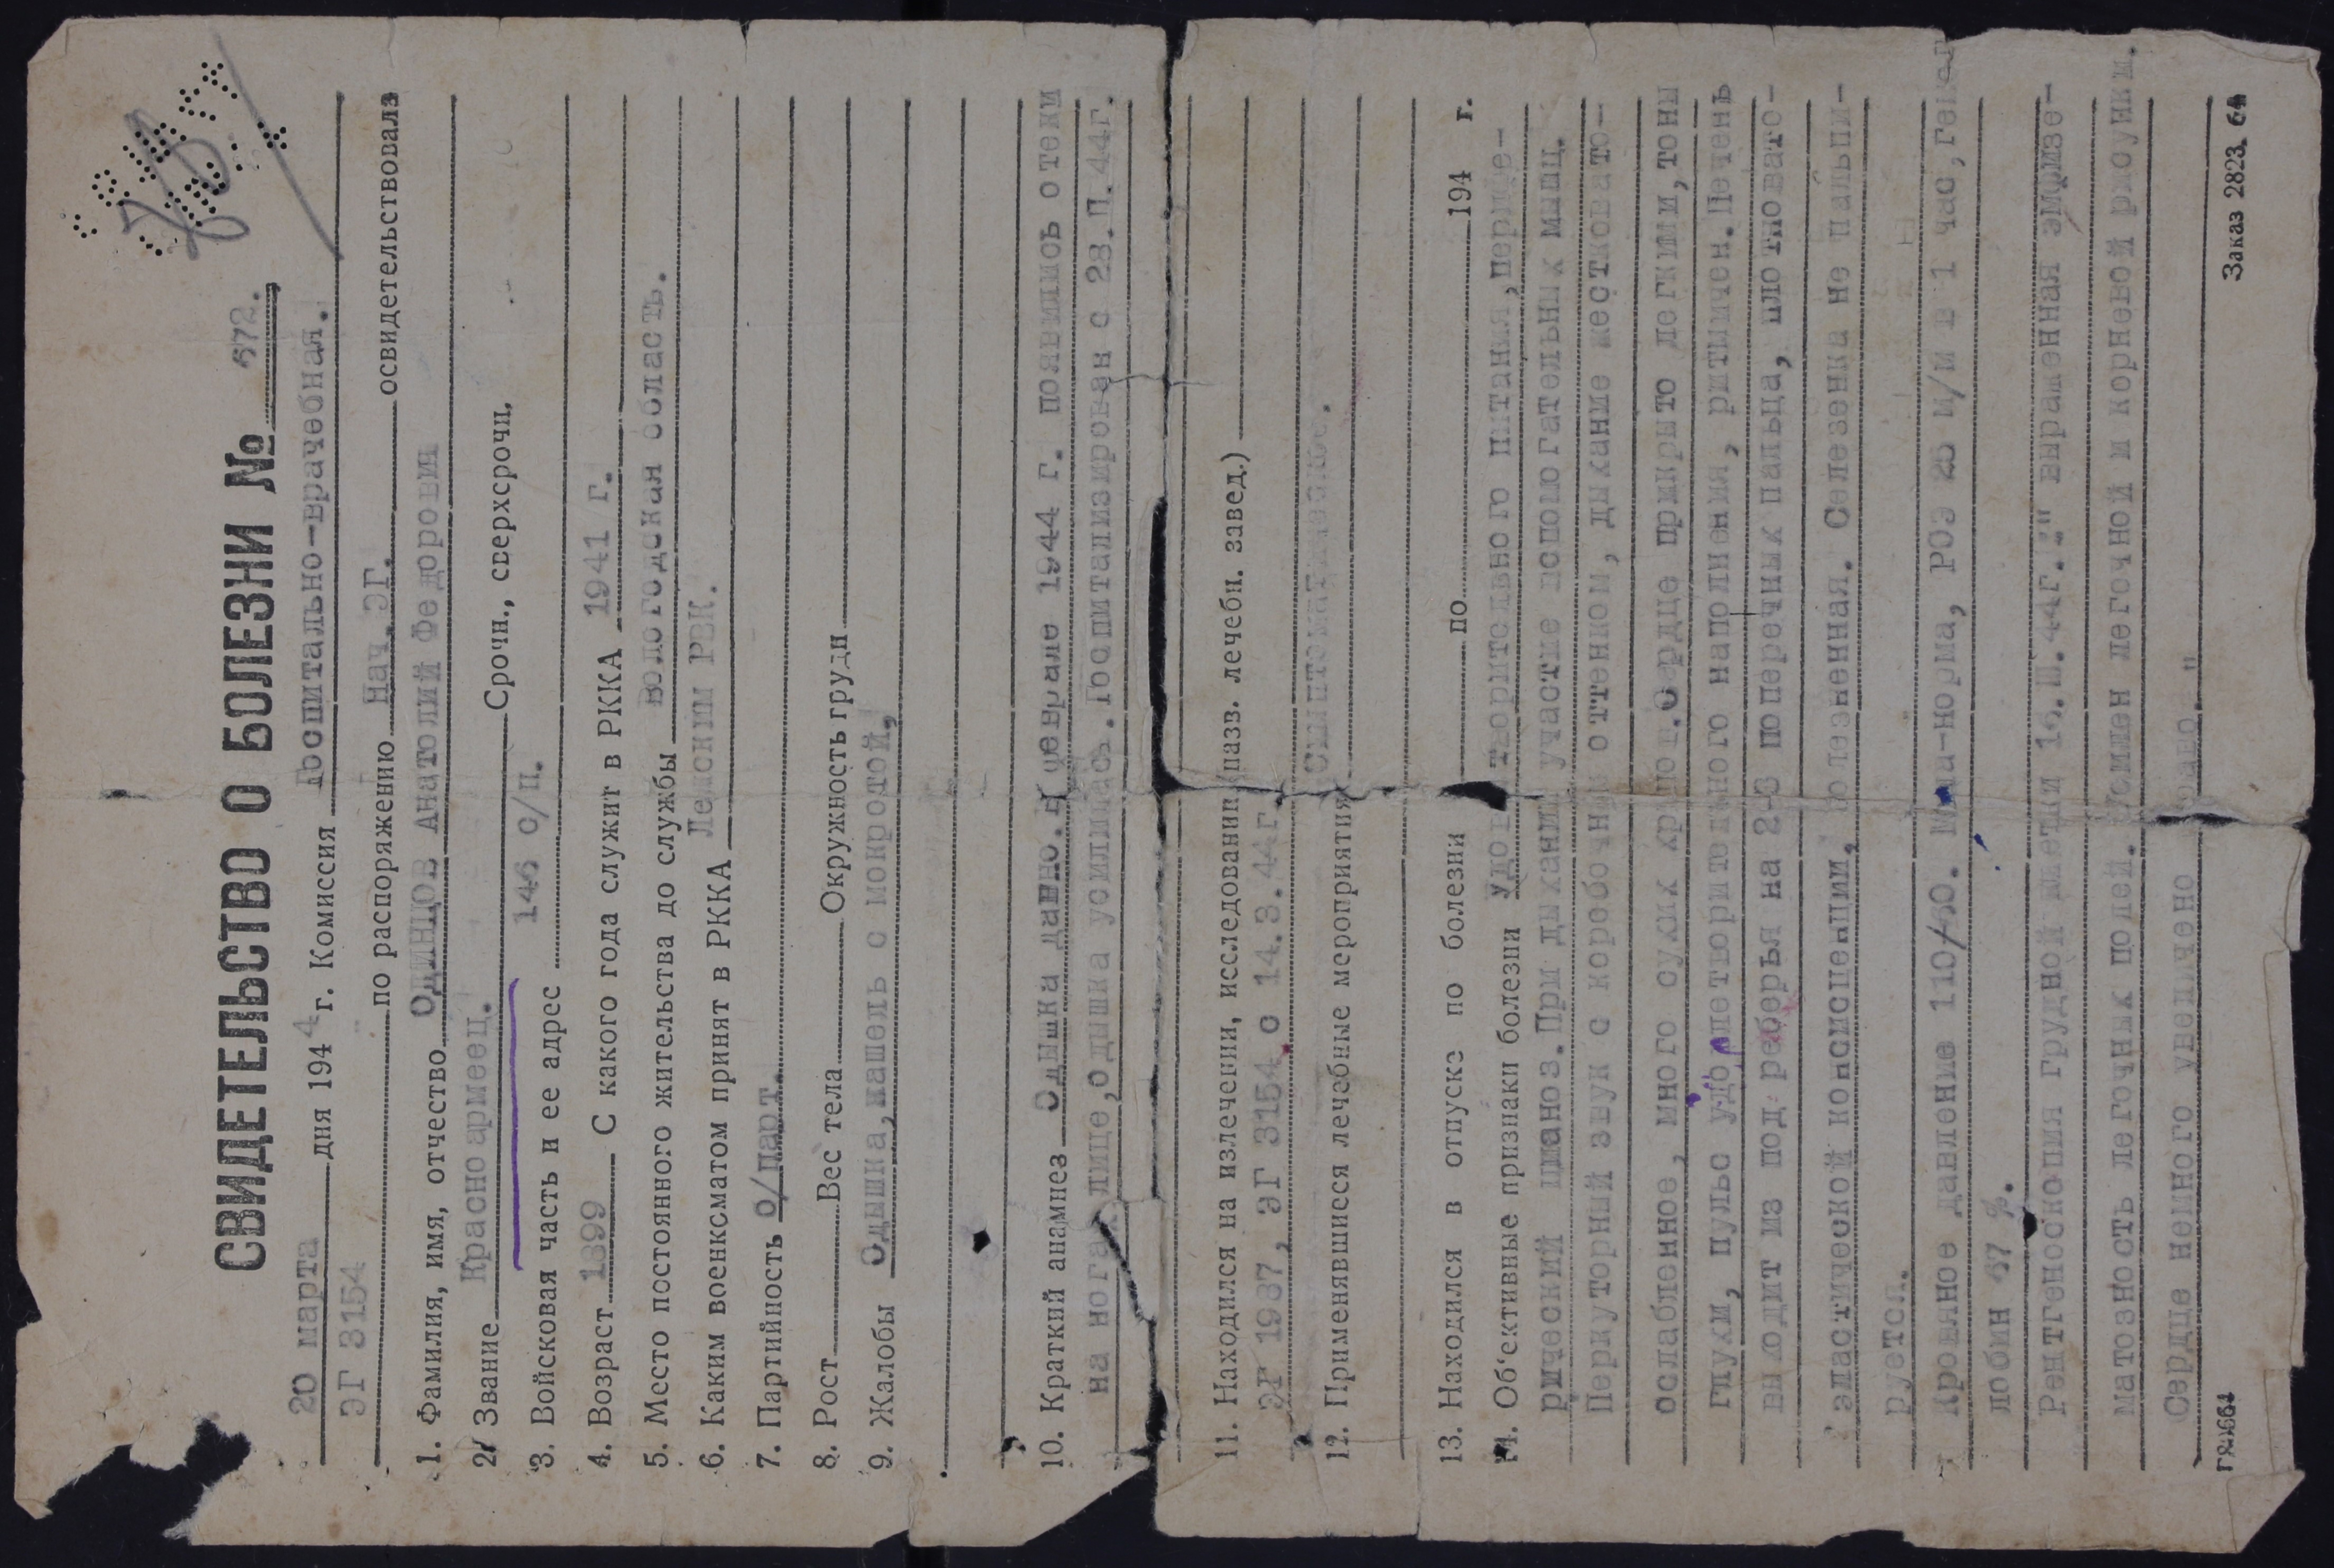 СВИДЕТЕЛЬСТВО О БОЛЕЗНИ № 672.
20 марта дня 1944 г. Комиссия Госпитально-врачебная.
ЭГ 3154
по распоряжению Нач. ЭГ. освидетельствовала
1. Фамилия, имя, отчество ОДИНЦОВ Анатолий Федорович
2. Звание Красноармеец. Срочн., сверхсрочн.
3. Войсковая часть и ее адрес 146 с/п.
4. Возраст 1899 С какого года служит в РККА 1941 г.
5. Место постоянного жительства до службы вологодская область.
6. Каким военкоматом принят в РККА РВК.
7. Партийность о/парт.
8. Рост Вес тела Окружность груди
9. Жалобы Одышка, кашель с мокротой.
10. Краткий анамнез Одышка давно. В феврале 1944 г. появились отеки
на ногах, лице, одышка усилилась. Госпитализирован с 28.П.44г.
11. Находился на излечении, исследовании (назв. лечебн. завед.)
ЭГ 1937, ЭГ 3154 с 14.3.44г
12. Применявшиеся лечебные мероприятия
13. Находился в отпуске по болезни по 194 г.
14. Об'ективные признаки болезни удовлтаорительного питания, перифе-
рический цианоз. При дыхании участие вспомогательных мышц.
Перкуторный звук с коробочным оттенком, дыхание жестковато-
ослабленное, много сухих хрипов. Сердце прикрыто легкими, тоны
глухи, пульс удовлетворительного наполнения, ритмичен. Печень
выходит из под реберья на 2-3 поперечных пальца, плотновато-
эластической консистенции, болезненная. Селезенка не пальпи-
руется.
Кровяное давление 110/60. Моча-норма, РОЭ 25 м/м в 1 час, гемог
лобин 67 %.
Рентгеноскопия грудной клетки 16.Ш.44г.:" выраженная эмфизе-
матозность легочных полей. Усилен легочной и корневой рисунки.
Сердце немного увеличено
Г82664
Заказ 2823. 64